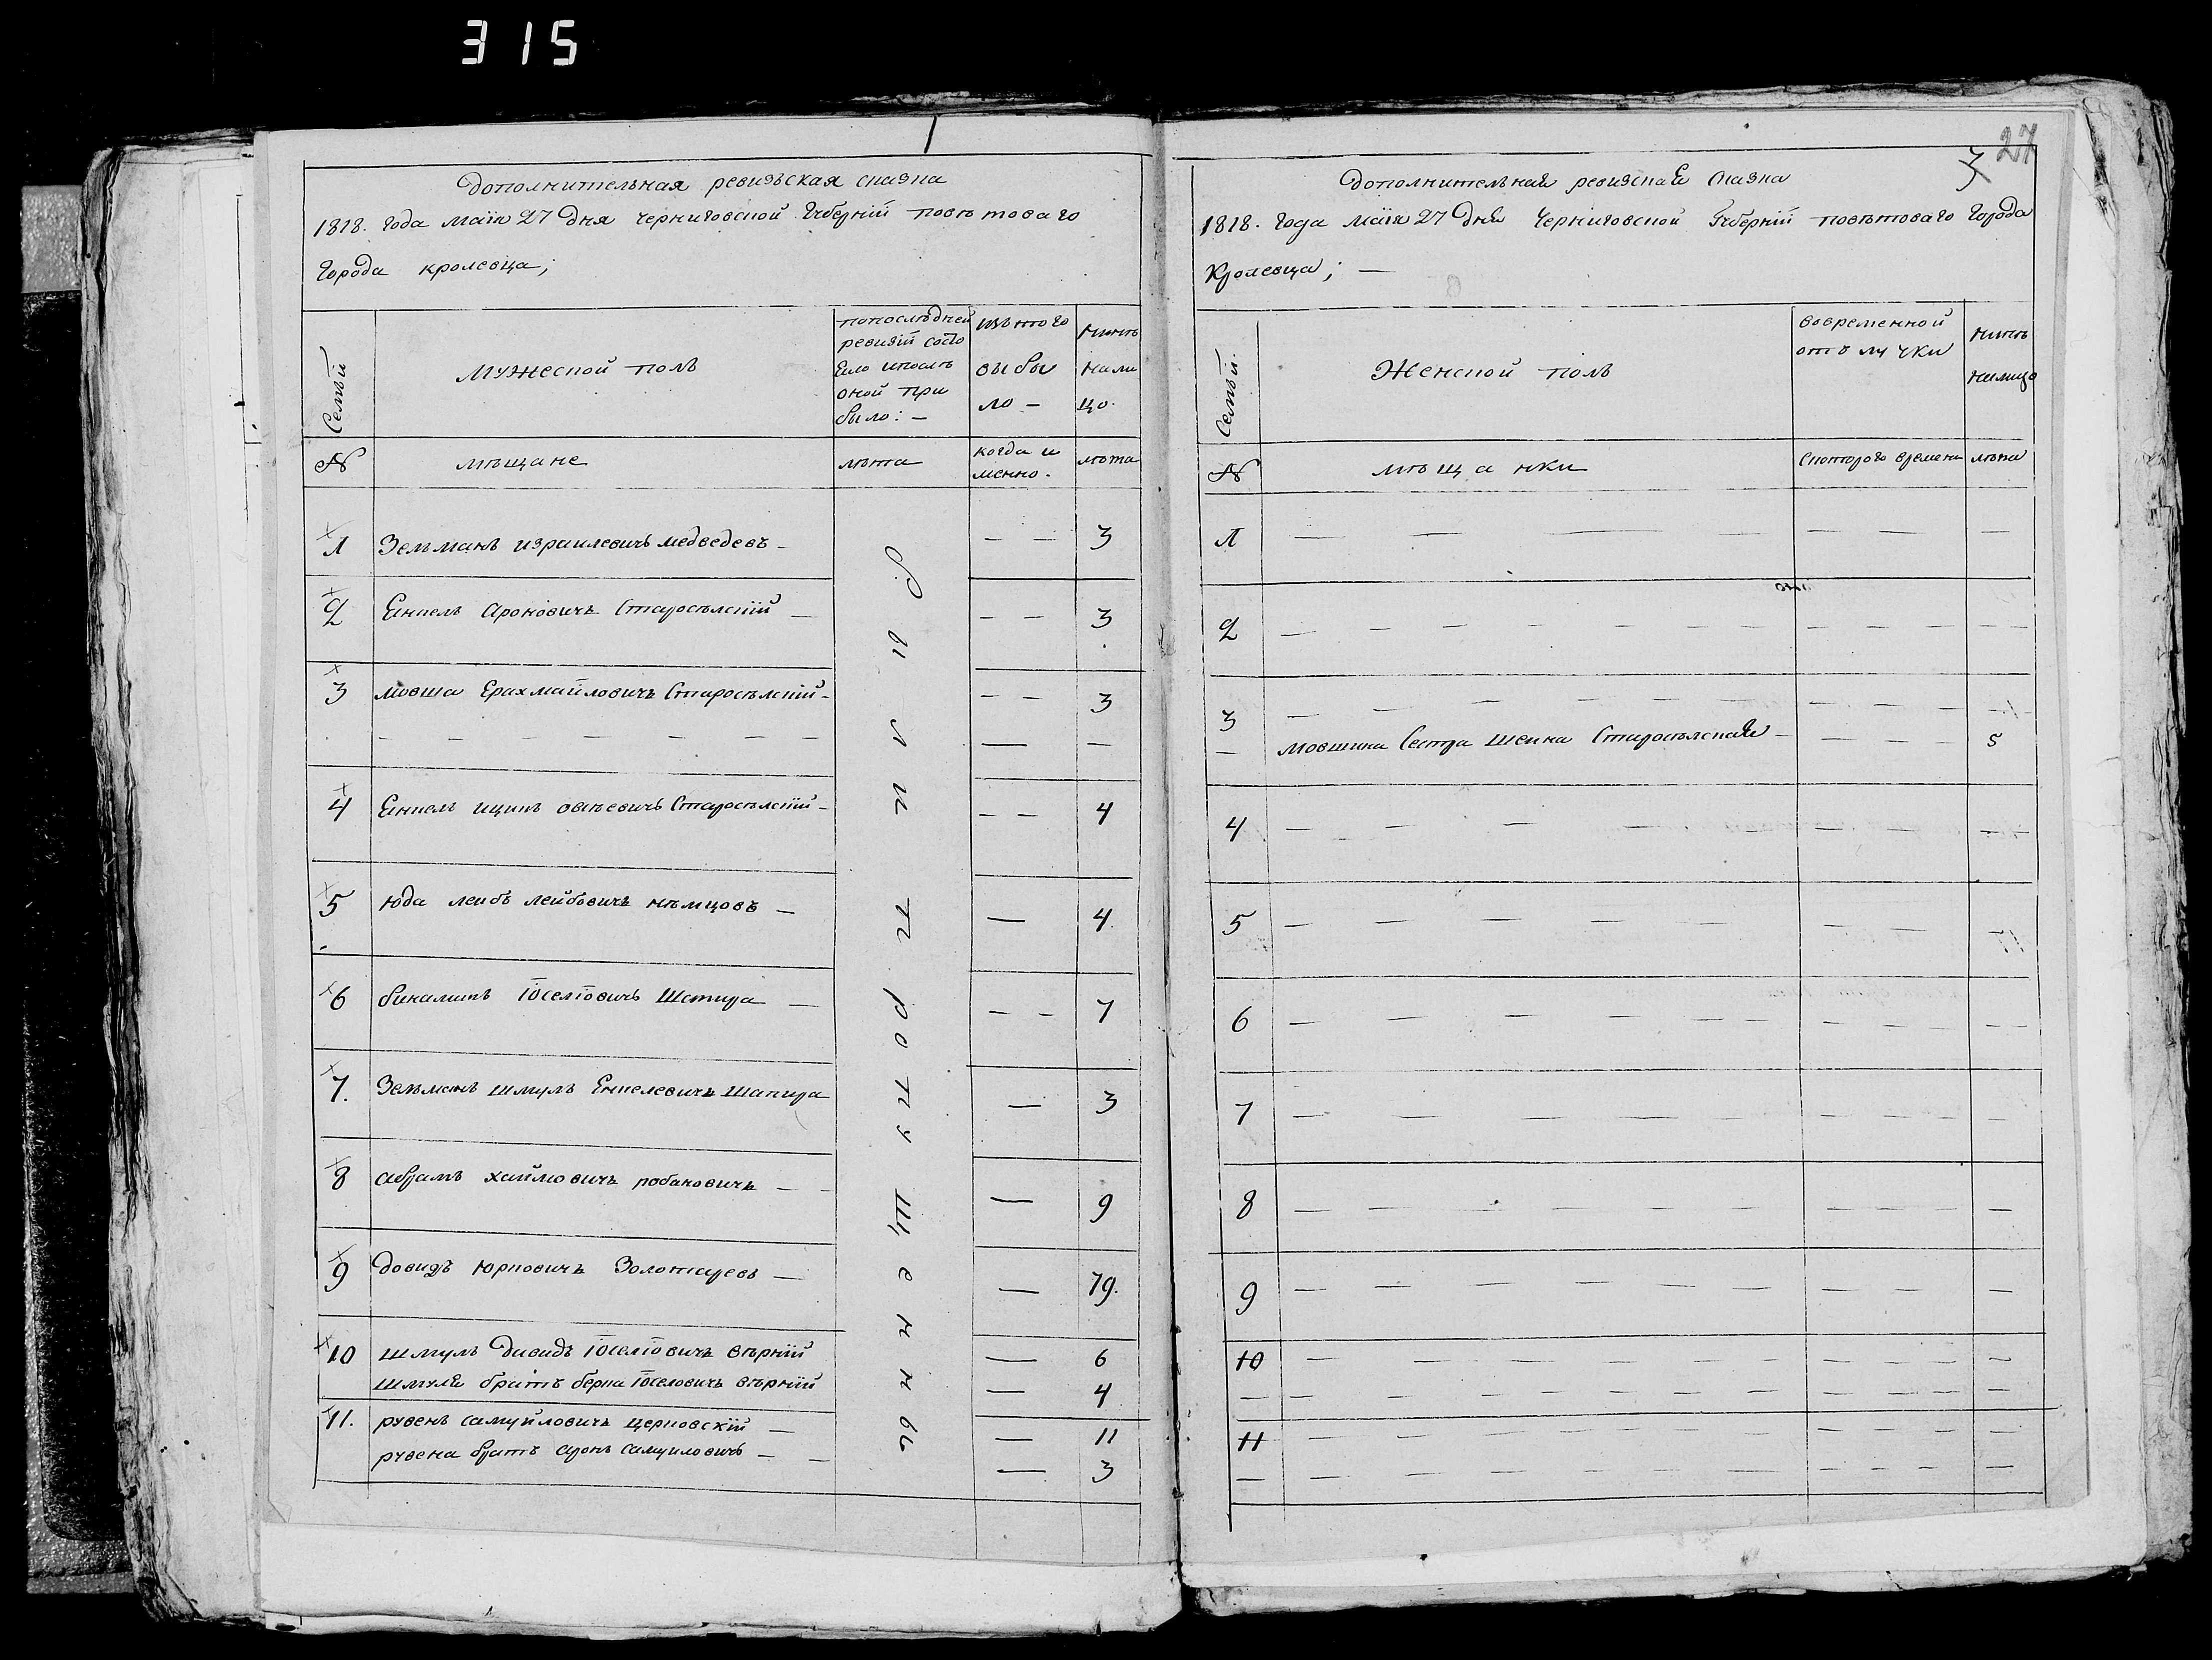 315
1
Дополнительная ревизъская сказка
1818. Года маия 27 дня черниговской Губернїи повѣтоваго
Города кролевца;
Семьи
мужеской полъ
попослѣдней ревизїи состо
яло ипослѣ оной при было: –
изъ того выбы ло –
нынѣ нали цо.
№
мѣщане
лѣта
когда и менно.
лѣта
1 Зельманъ израилевичъ медведевъ – – – 3
2 Янкель Ароновичъ Старосѣлскїй – – – 3
3 мовша Ерахмаиловичъ Старосѣлскїй – – – 3
– – – – – – – – –
4 Янкель ицикъ овсѣевичъ Старосѣлскїй – – – 4
5 Юда леибъ лейбовичъ нѣмцовъ – – 4.
6 биниаминъ Їоселїовичъ Шапира – – – 7
7. Зельманъ шмуль Янкелевичъ шапира – 3
8 абрамъ хаимовичъ рабановичъ – – 9
9 довидъ юрковичъ Золотаревъ – – 19.
10 шмуль Давидъ Їоселїовичъ вѣрнїй – 6
шмуля братъ берка Їоселовичъ вѣрнїй – 4
11. рувенъ самуйловичъ церковскїй – – 11
рувена братъ аронъ самуиловичъ – – – 3
27
3
Дополнительная ревизская сказка
1818. Года маия 27 дня Черниговской Губернїи повѣтоваго Города
Кролевца; –
Семьи
Женской полъ
вовременной отълучки
нынѣ налицо
№
мѣщанки
скоторого времени
лѣта
1 – – – – – – –
2 – – – – – – – – – – –
3 – – – – – – – – –
– мовшина Сестра шеина Старосѣлская – – – – 5
4 – – – – – – – –
5 – – – – – –
6 – – – – – – – – – –
7 – – – – – – – – –
8 – – – – – – – – – –
9 – – – – – – – – –
10 – – – – – – – – – –
– – – – – – – – – – –
11 – – – – – – – – – –
– – – – – – – – – – –